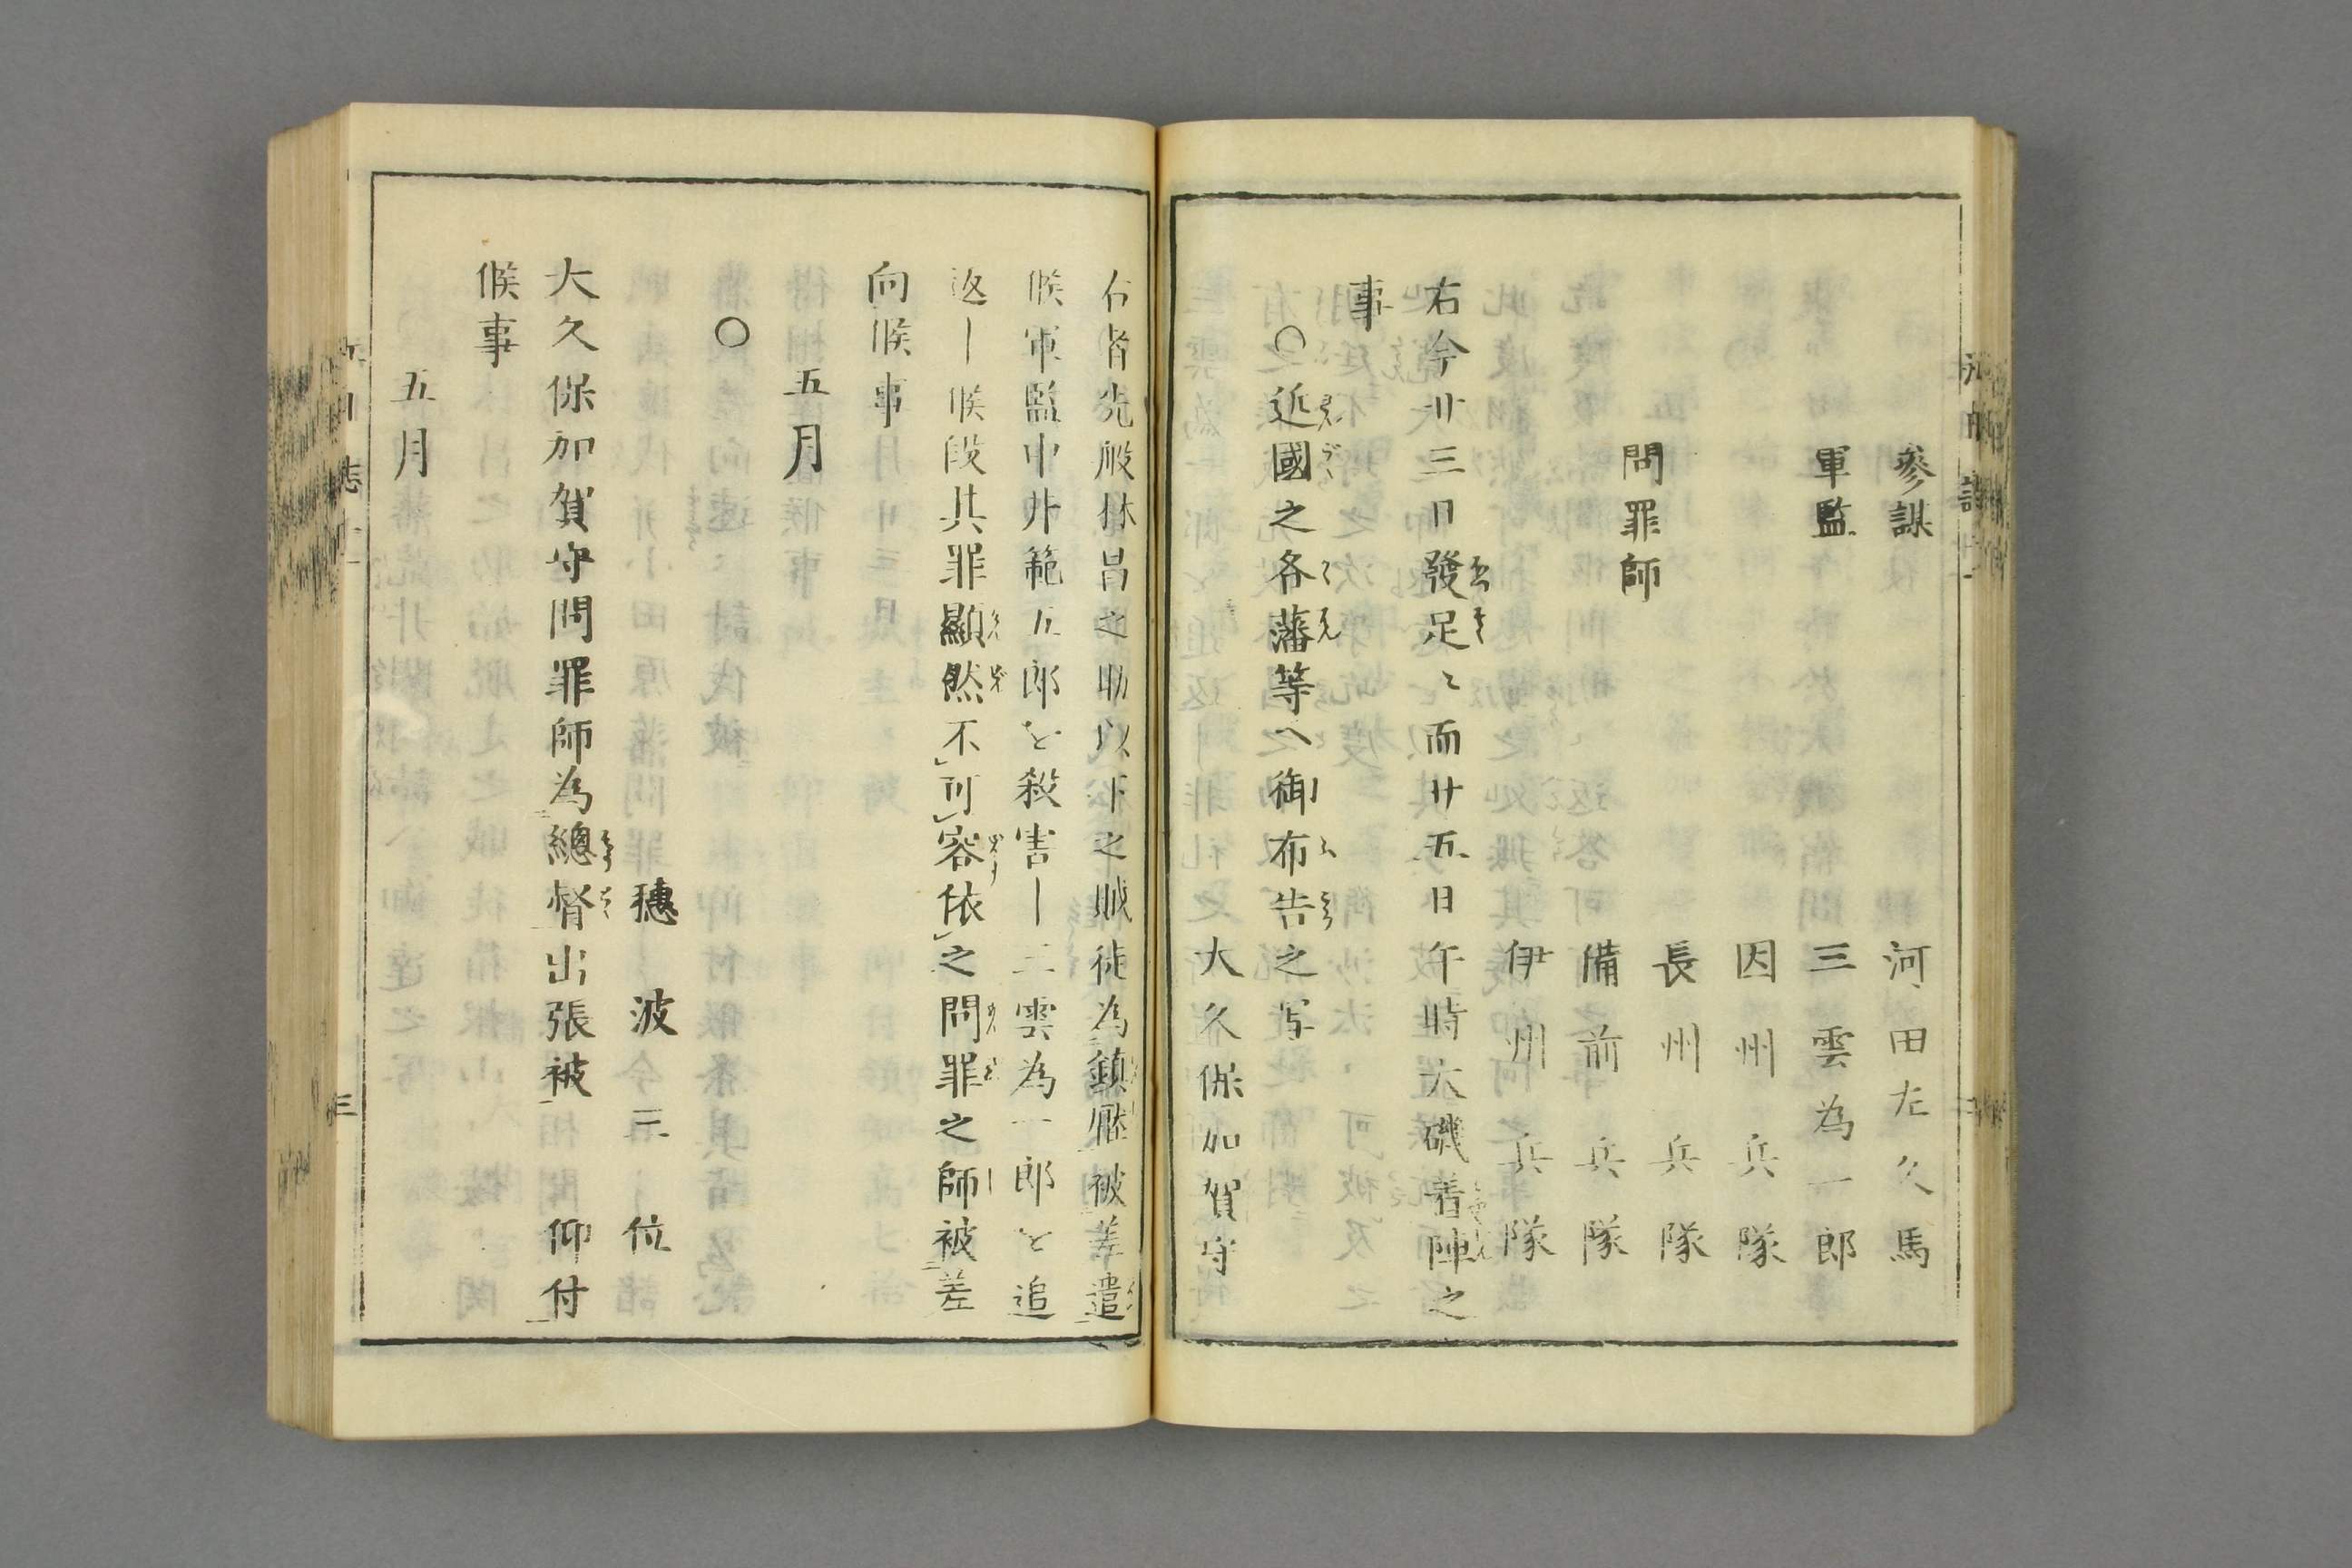 參謀　河田左久馬
軍監　三雲為一郎
因州兵隊
問罪師　長州兵隊
備前兵隊
伊州兵隊
右今廿三日發足〻而廿五日午時大磯着陣之
事
〇近國之各藩等へ御布告之写
大久保加賀守
右者先般林昌之助以下之賊徒為鎮壓被差遣
候軍監中井範五郎を殺害し三雲為一郎を追
返し候段其罪顯然不可容依之問罪之師被差
向候事
五月
〇
穗波三位
大久保加賀守問罪師為總督出張被　仰付
候事
五月
三